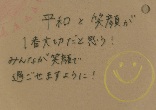 平和と笑顔が
1番大切だと思う!
みんなが笑顔で
過ごせますように!